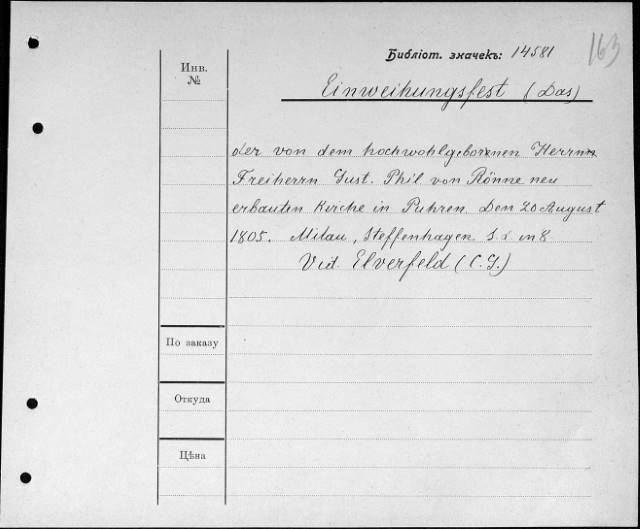 163
Библіот. значекъ: 14581
Инв. №
Einweihungsfest (Das)
der von dem hochwohlgeborenen Herrn
Freiherrn Gust. Phil. von Rönne neu
erbauten Kirche in Puhren. Den 20 August
1805. Mitau, Steffenhagen s. a. in 8.
Vid. Elverfeld (C. G.)
По заказу
Откуда
Цѣна